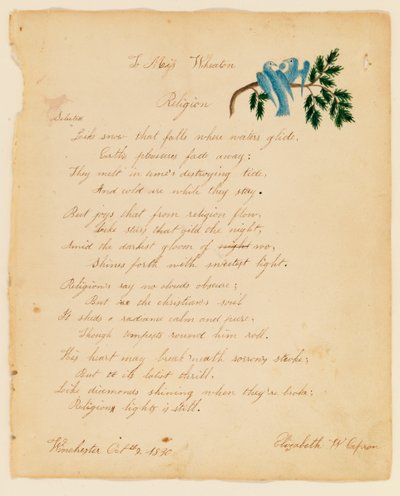 To Miss Wheaton
Religion
Selected
Like snow that falls where waters glide,
Earth's pleasures fade away;
They melt in time's destroying tide,
And cold are while they stay.
But joys that from religion flow,
Like stars that gild the night,
Amid the darkest gloom of night wo,
Shines forth with sweetest light.
Religion's ray no clouds obscure;
But the christian's soul
It sheds a radiance calm and pure,
Though tempests round him roll.
His heart may break 'neath sorrow's stroke;
But its latest thrill.
Like diamonds shining when they're broke;
Religion's light is still.
Winchester Oct
Elizabeth W Capron